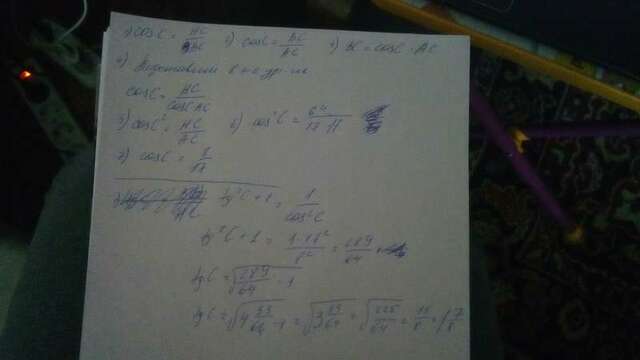 1) cosC = HC/BC 2) cosC = BC/AC 3) BC = cosC · AC
4) Подставим в 1-е ур-ие
cosC = HC/cosC·AC
5) cos²C = HC/AC 6) cos²C = 64/17·17
7) cosC = 8/17
tg²C + 1 = 1/cos²C
tg²C + 1 = 1·17²/8² = 289/64
tgC = √289/64 - 1
tgC = √4 33/64 - 1 = √3 33/64 = √225/64 = 15/8 = 1 7/8